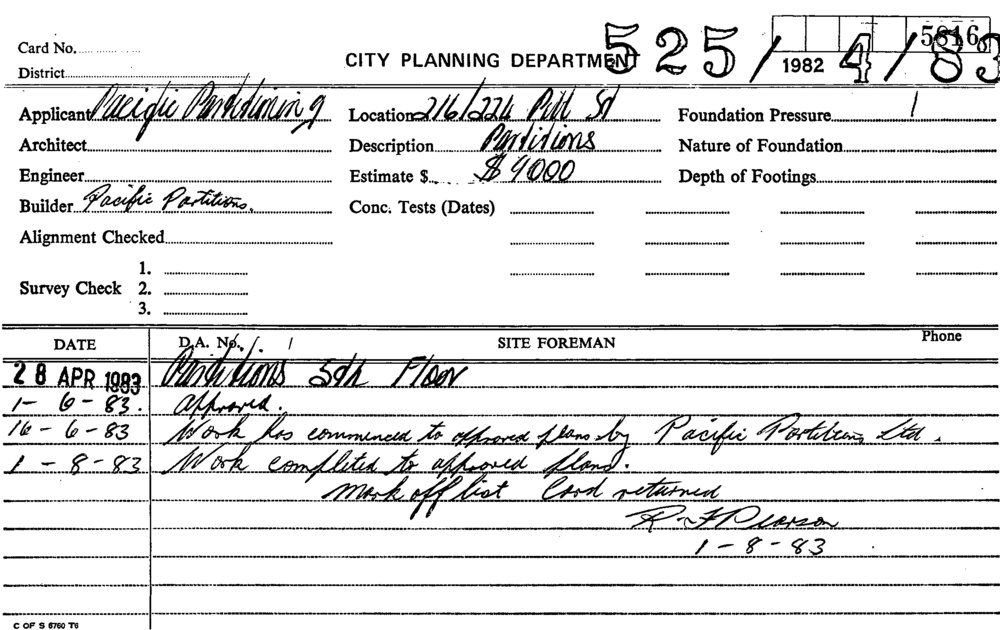 5816
525/4/83
Card No.
CITY PLANNING DEPARTMENT
1982
District
Applicant Pacific Partitioning
Location 216/224 Pitt St
Foundation Pressure
Architect
Description Partitions
Nature of Foundation
Engineer
Estimate $ $9000
Depth of Footings
Builder Pacific Partitions.
Conc. Tests (Dates)
Alignment Checked
Survey Check 1.
2.
3.
DATE
D.A. No.
SITE FOREMAN
Phone
28 APR 1983 Partitions 5th Floor
1-6-83. Approved.
16-6-83 Work has commenced to approved plans by Pacific Partitions Ltd.
1-8-83 Work completed to approved plans.
Mark off list Card returned
R F Pearson
1-8-83
C OF S 6760 T6